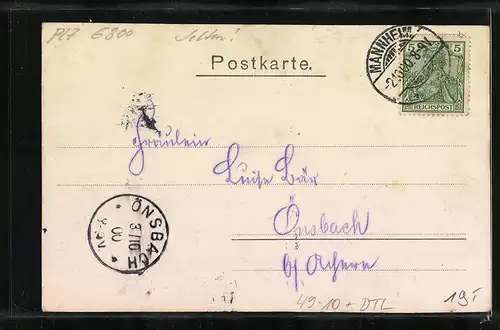 PLZ 6800 Selten!
Postkarte.
MANNHEIM
5 5
REICHSPOST
Fräulein
Luise Bär
Önsbach
b/ Achern
ÖNSBACH
3/10
00
49-10 + DTL
19,-